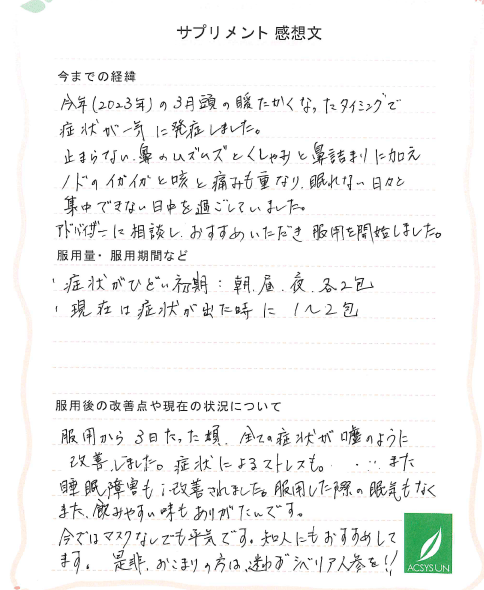 サプリメント 感想文
今までの経緯
今年(2023年)の3月頭の暖たかくなったタイミングで
症状が一気に発症しました。
止まらない鼻のムズムズとくしゃみと鼻詰まりに加え
ノドのイガイガと咳と痛みも重なり、眠れない日々と
集中できない日中を過ごしていました。
アドバイザーに相談し、おすすめいただき 服用を開始しました。
服用量・服用期間など
・症状がひどい初期：朝、昼、夜、各2包
・現在は症状が出た時に 1～2包
服用後の改善点や現在の状況について
服用から 3日たった頃、全ての症状が嘘のように
改善しました。症状によるストレスも。・・・また
睡眠障害も改善されました。服用した際の眠気もなく
また、飲みやすい味もありがたいです。
今ではマスクなしでも平気です。知人にもおすすめして
ます。 是非、おこまりの方は、迷わずシベリア人参を!!
ACSYSUN